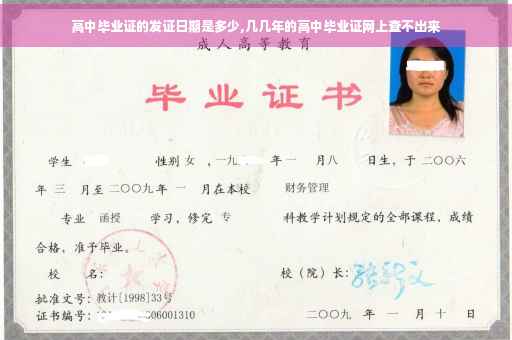 高中毕业证的发证日期是多少,几几年的高中毕业证网上查不出来
成人高等教育
毕业证书
学生 性别 女 ,一九 年 一 月八 日生，于 二〇〇六
年 三 月至 二〇〇九 年 一 月在本校 财务管理
专业 函授 学习，修完 专 科教学计划规定的全部课程，成绩
合格，准予毕业。
校 名： 校（院）长：
批准文号：教计[1998]33号
证书编号： 06001310 二〇〇九 年 一 月 十 日